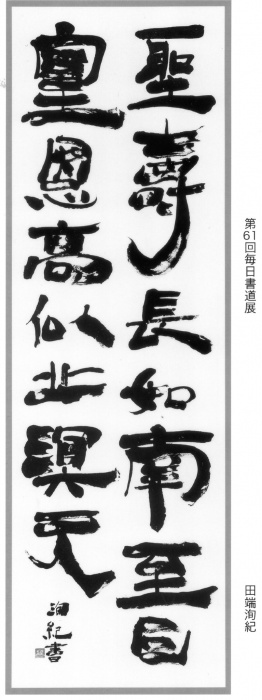 第61回毎日書道展
田端洵紀
聖壽長如南至日
皇恩高似北溟天
洵紀書